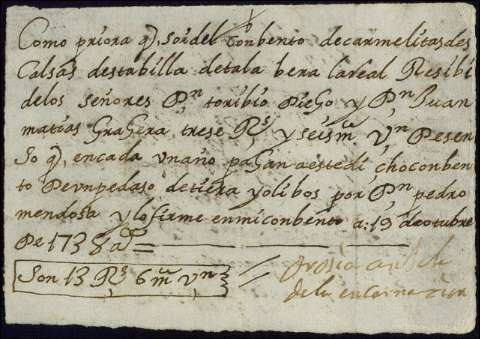 Como priora q̃, soi del conbento de carmelitas des
Calsas desta billa de tala bera la real Resibi
de los señores Dⁿ toribio Dieho y Dⁿ Juan
matias Grahera trese Rˢ y seis mˢ Vⁿ Pe sen
so q̃, en cada vn año pahan a este di choconben
to De vn pedaso de tiera y olibos por Dⁿ pedro
mendosa y lo firme en mi conbento a: 19 de otubre
De 1738 aˢ
Son 13 Rˢ 6 mˢ Vⁿ
de la encarnazion